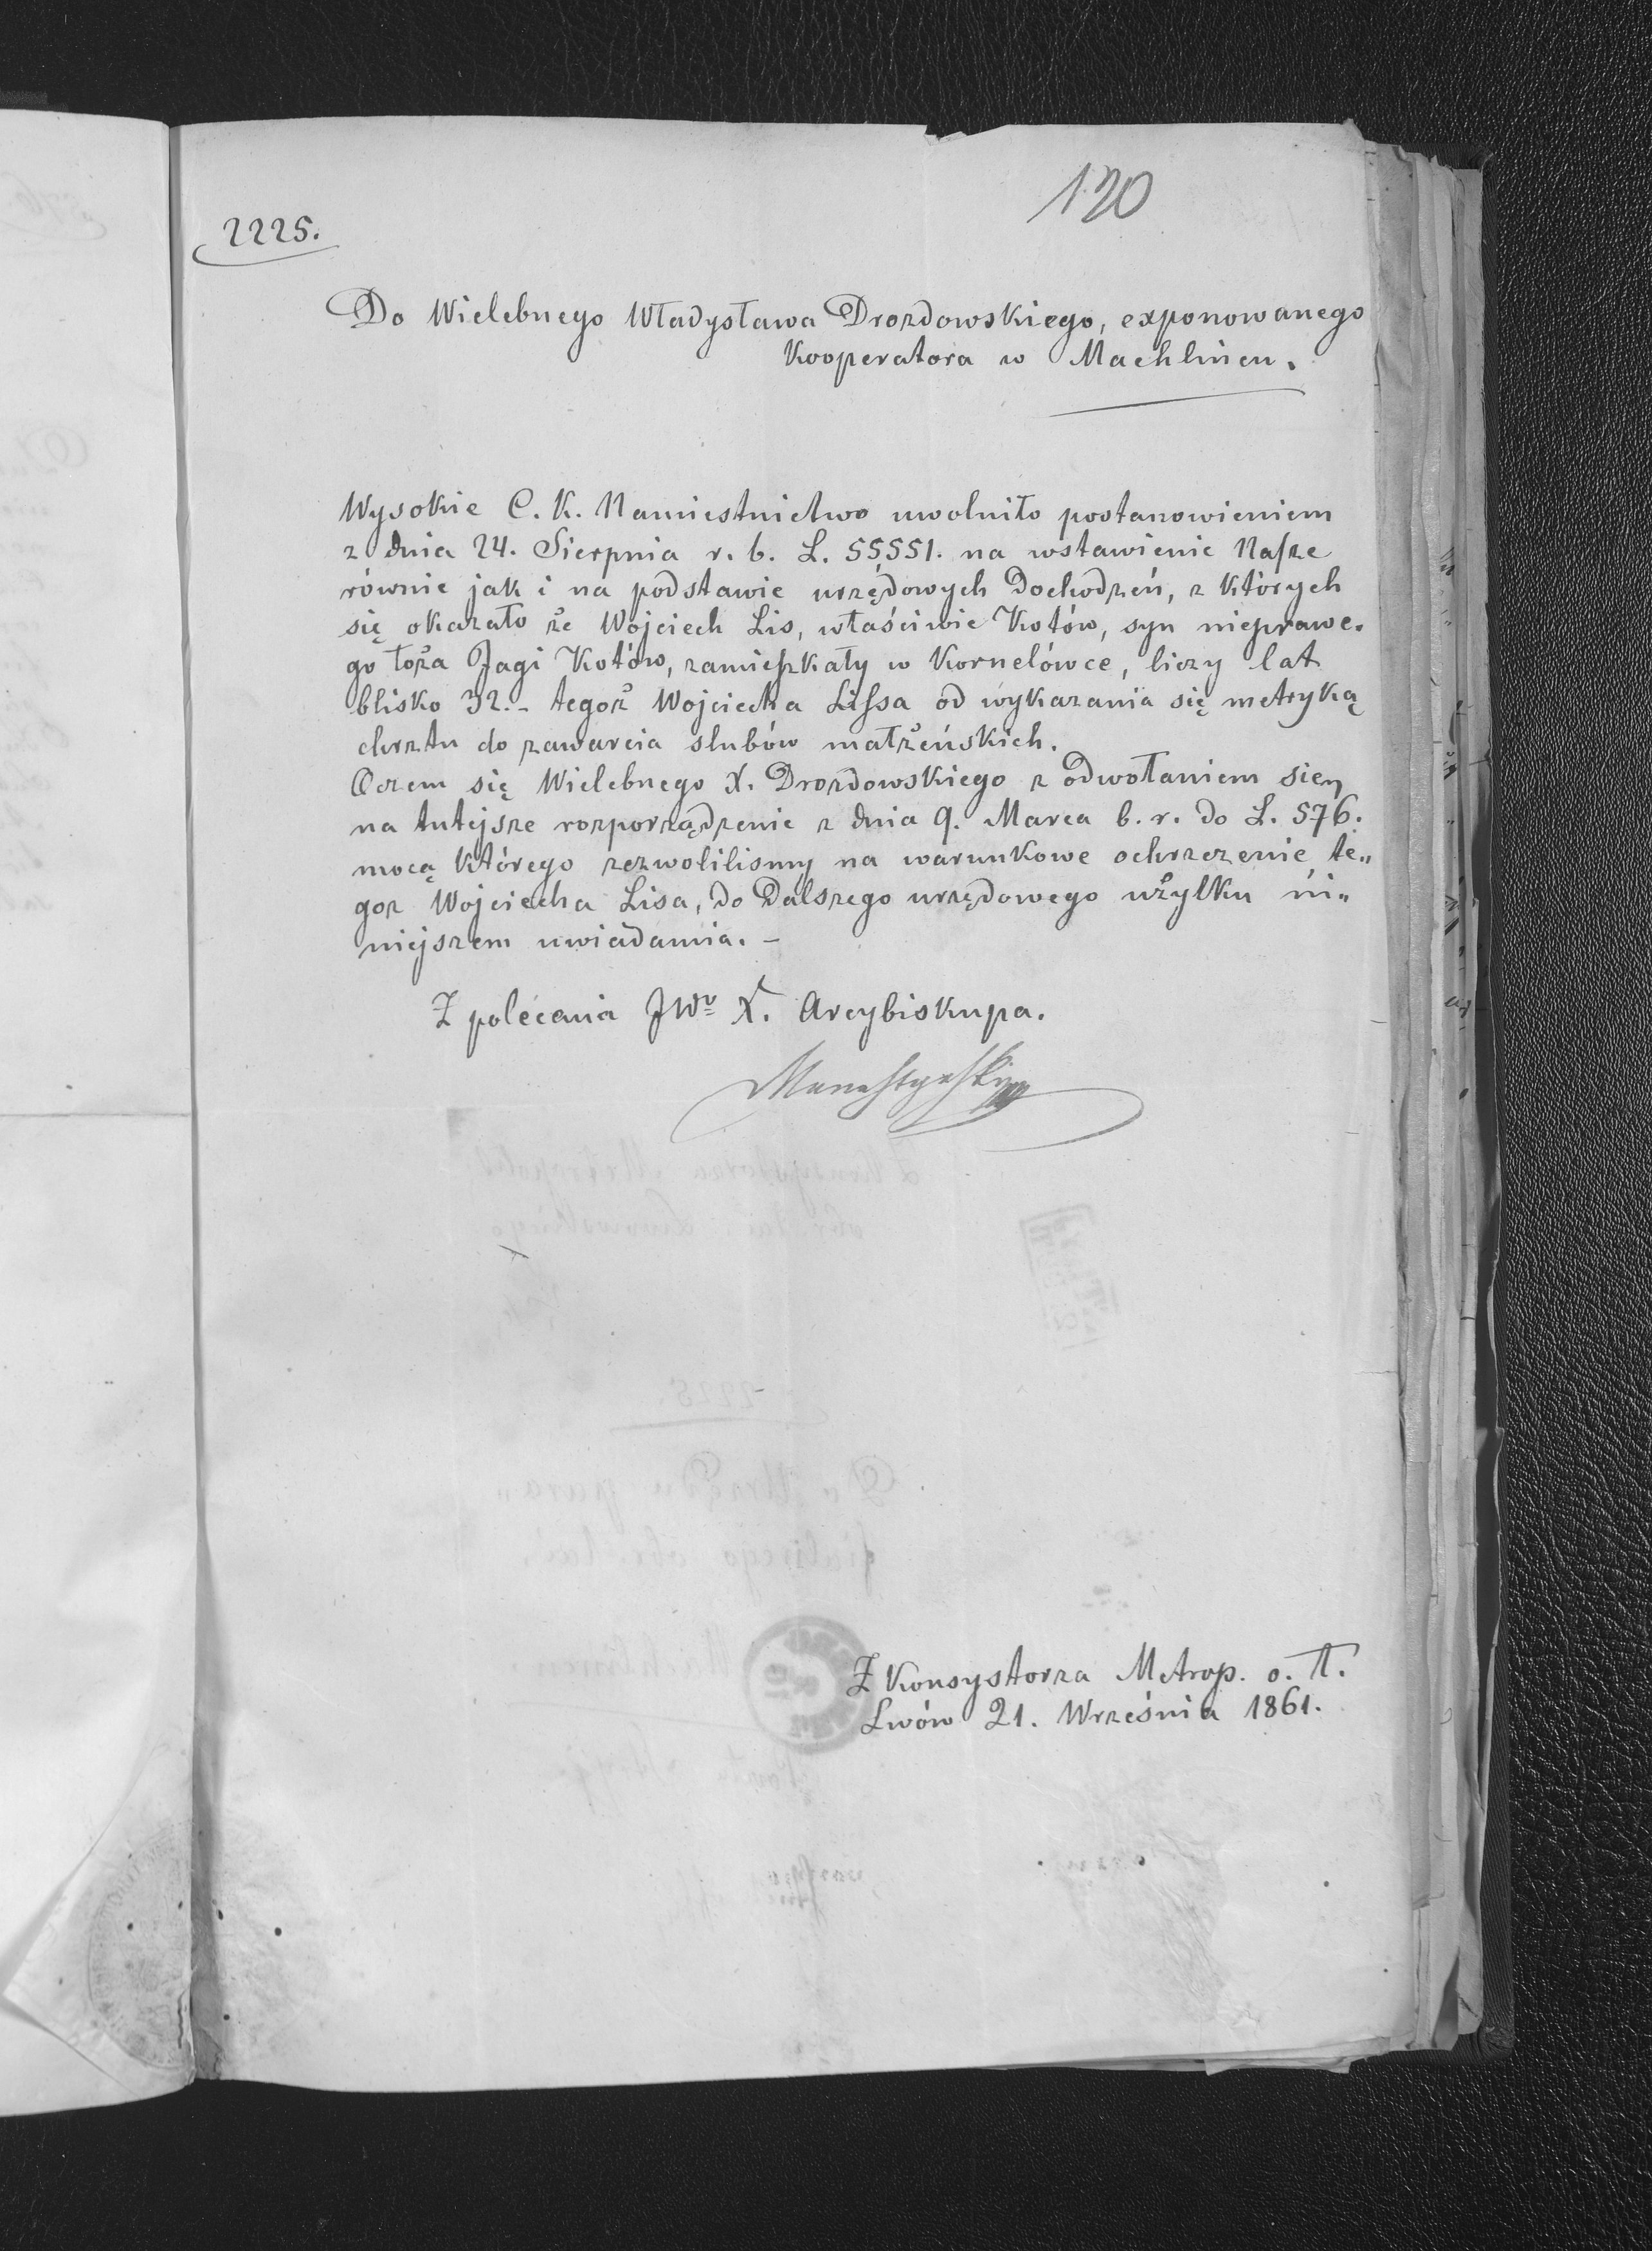 120
2225.
Do Wielebnego Władysława Drozdowskiego, exponowanego
Kooperatora w Machlińcu.
Wysokie C. K. Namiestnictwo uwolniło postanowieniem
z dnia 24. Sierpnia r. b. L. 55551. na wstawienie Nasze
równie jak i na podstawie urzędowych Dochodzeń, z których
się okazało że Wojciech Lis, właściwie Kotów, syn niepra­we-
go łoża Jagi Kotów, zamieszkały w Kornelówce, liczy lat
blisko 32. – tegoż Wojciecha Lissa od wykazania się metryką
chrztu do zawarcia slubów małżeńskich.
Oczem się Wielebnego X. Drozdowskiego z odwołaniem sien
na tutejsze rozporządzenie z dnia 9. Marca b. r. do L. 576.
mocą którego zezwolilismy na warunkowe ochrzczenie te„
goz Wojciecha Lisa, do Dalszego urzędowego użytku ni„
niejszem uwiadamia. –
Z polécenia JWo X. Arcybiskupa.
Z Konsystorza Metrop. o. ł.
Lwów 21. Września 1861.